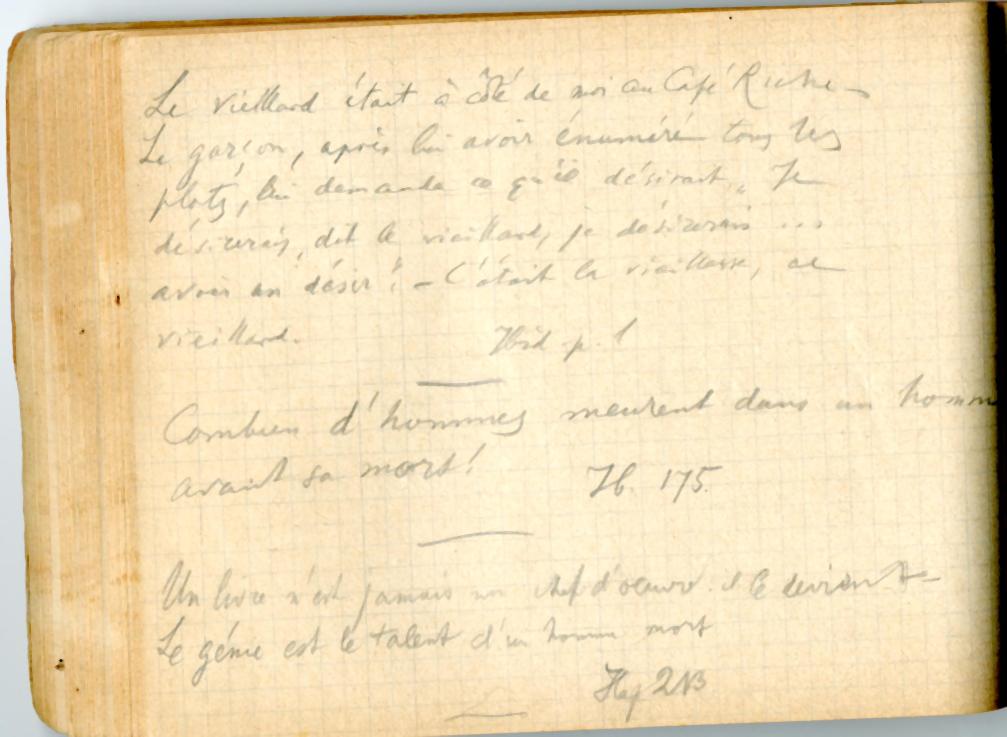 Le vieillard était à côté de moi au Café Riche –
Le garçon, après lui avoir énuméré tous les
plats, lui demanda ce qu'il désirait „ Je
désirerais, dit le vieillard, je désirerais ...
avoir un désir". – C'était la vieillesse, ce
vieillard.
Ibid p. 1
Combien d'hommes meurent dans un homme
avant sa mort!
Ib. 175.
Un livre n'est jamais un chef d'oeuvre. il le devient –
Le génie est le talent d'un homme mort